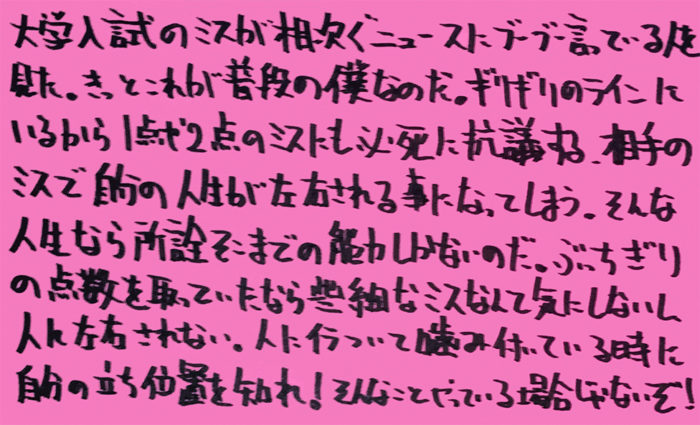 大学入試のミスが相次ぐニュースにブーブー言っている人を
見た。きっとこれが普段の僕なのだ。ギリギリのラインに
いるから1点や2点のミスにも必死に抗議する、相手の
ミスで自分の人生が左右される事になってしまう。そんな
人生なら所詮そこまでの能力しかないのだ。ぶっちぎり
の点数を取っていたなら些細なミスなんて気にしないし
人に左右されない。人に行ついて噛み付いている時に
自分の立ち位置を知れ!そんなことやっている場合じゃないぞ!